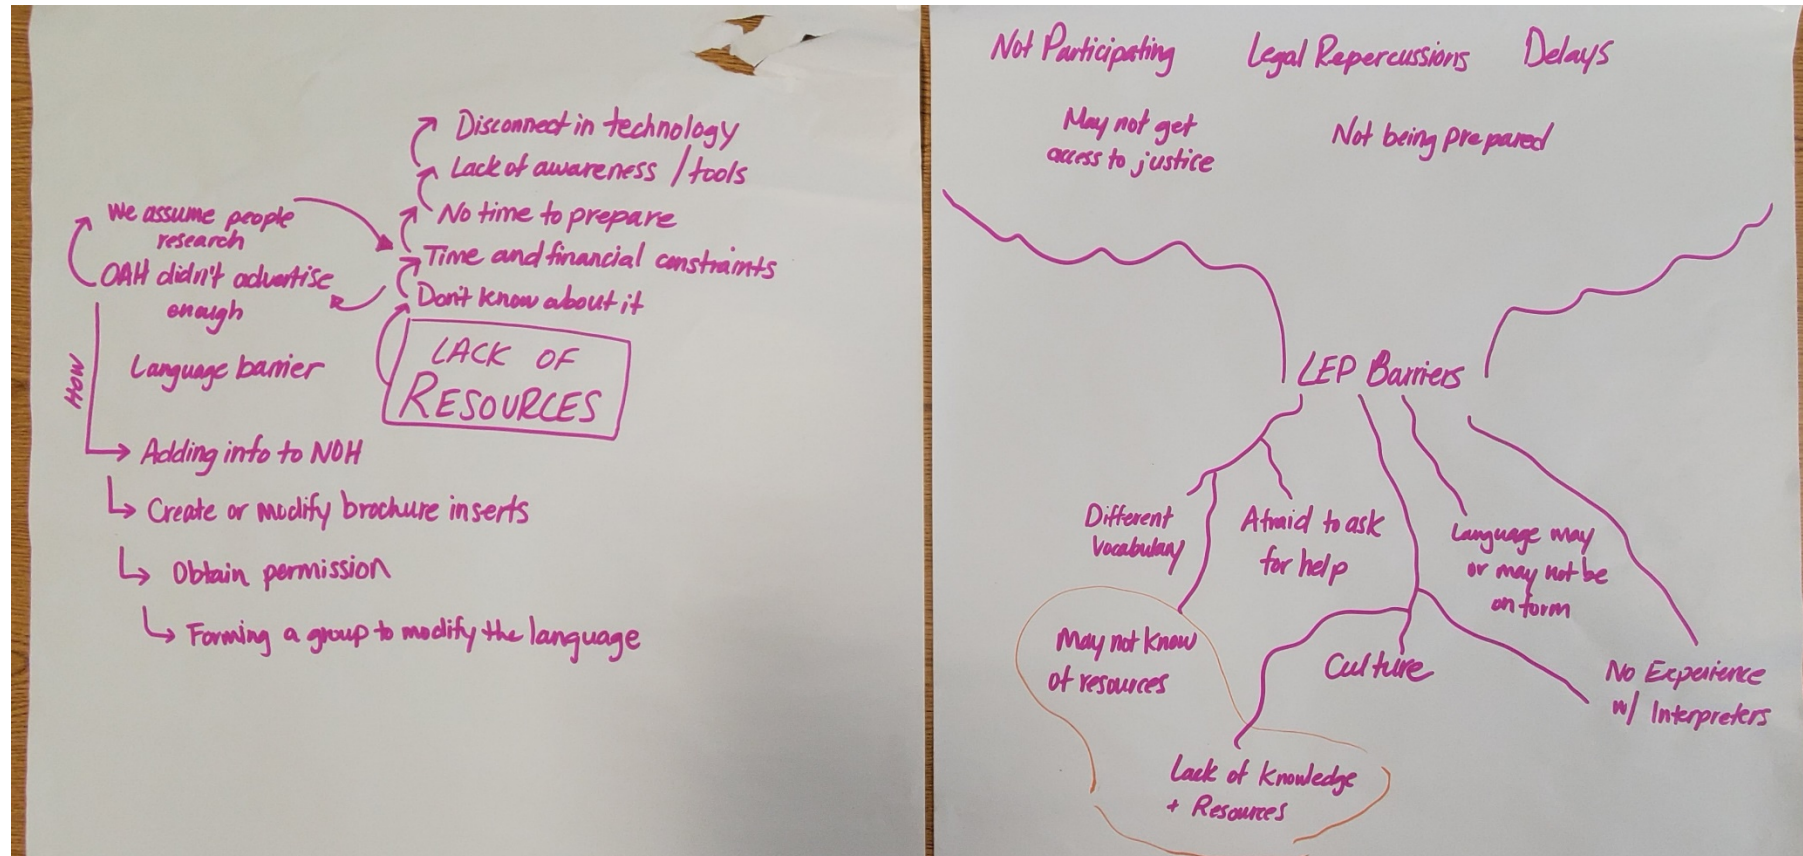 Disconnect in technology
Lack of awareness / tools
No time to prepare
Time and financial constraints
Don't know about it
LACK OF
RESOURCES
We assume people
research
OAH didn't advertise
enough
Language barrier
HOW
Adding info to NOH
Create or modify brochure inserts
Obtain permission
Forming a group to modify the language
Not Participating
Legal Repercussions
Delays
May not get
access to justice
Not being prepared
LEP Barriers
Different
Vocabulary
Afraid to ask
for help
Language may
or may not be
on form
May not know
of resources
Culture
No Experience
w/ Interpreters
Lack of Knowledge
+ Resources